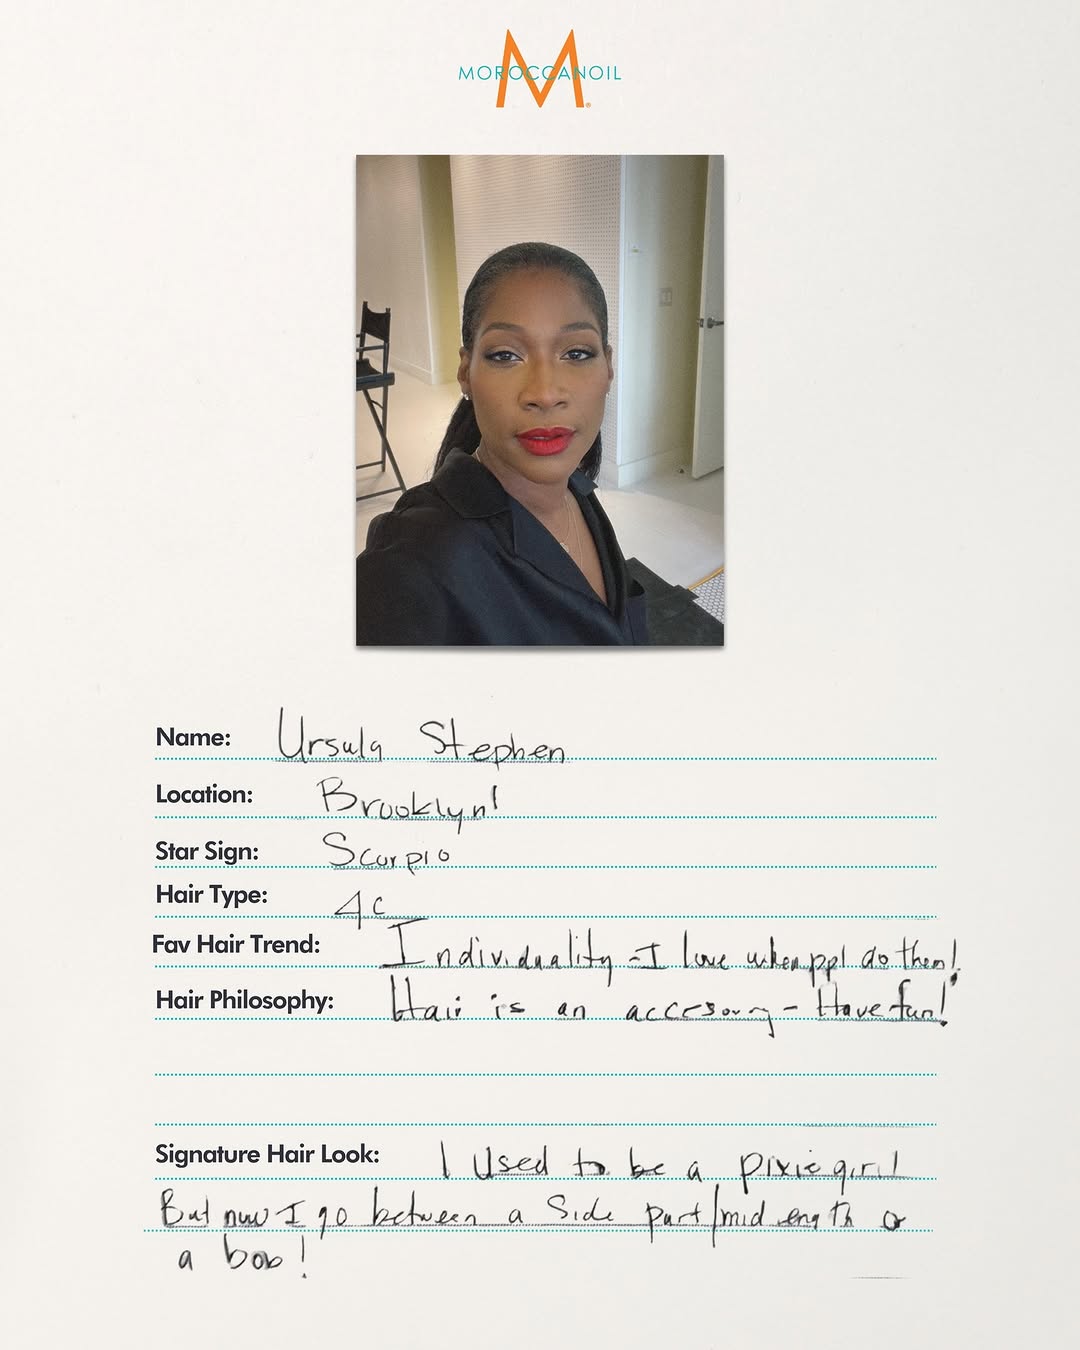 MOROCCANOIL
Name: Ursula Stephen
Location: Brooklyn!
Star Sign: Scorpio
Hair Type: 4c
Fav Hair Trend: Individuality - I love when ppl do them!
Hair Philosophy: Hair is an accesory - Have fun!
Signature Hair Look: I used to be a pixie girl
But now I go between a Side part/mid length or
a bob!